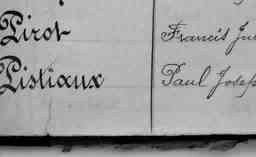 Pirot Francis Ju
Pistiaux Paul Josep